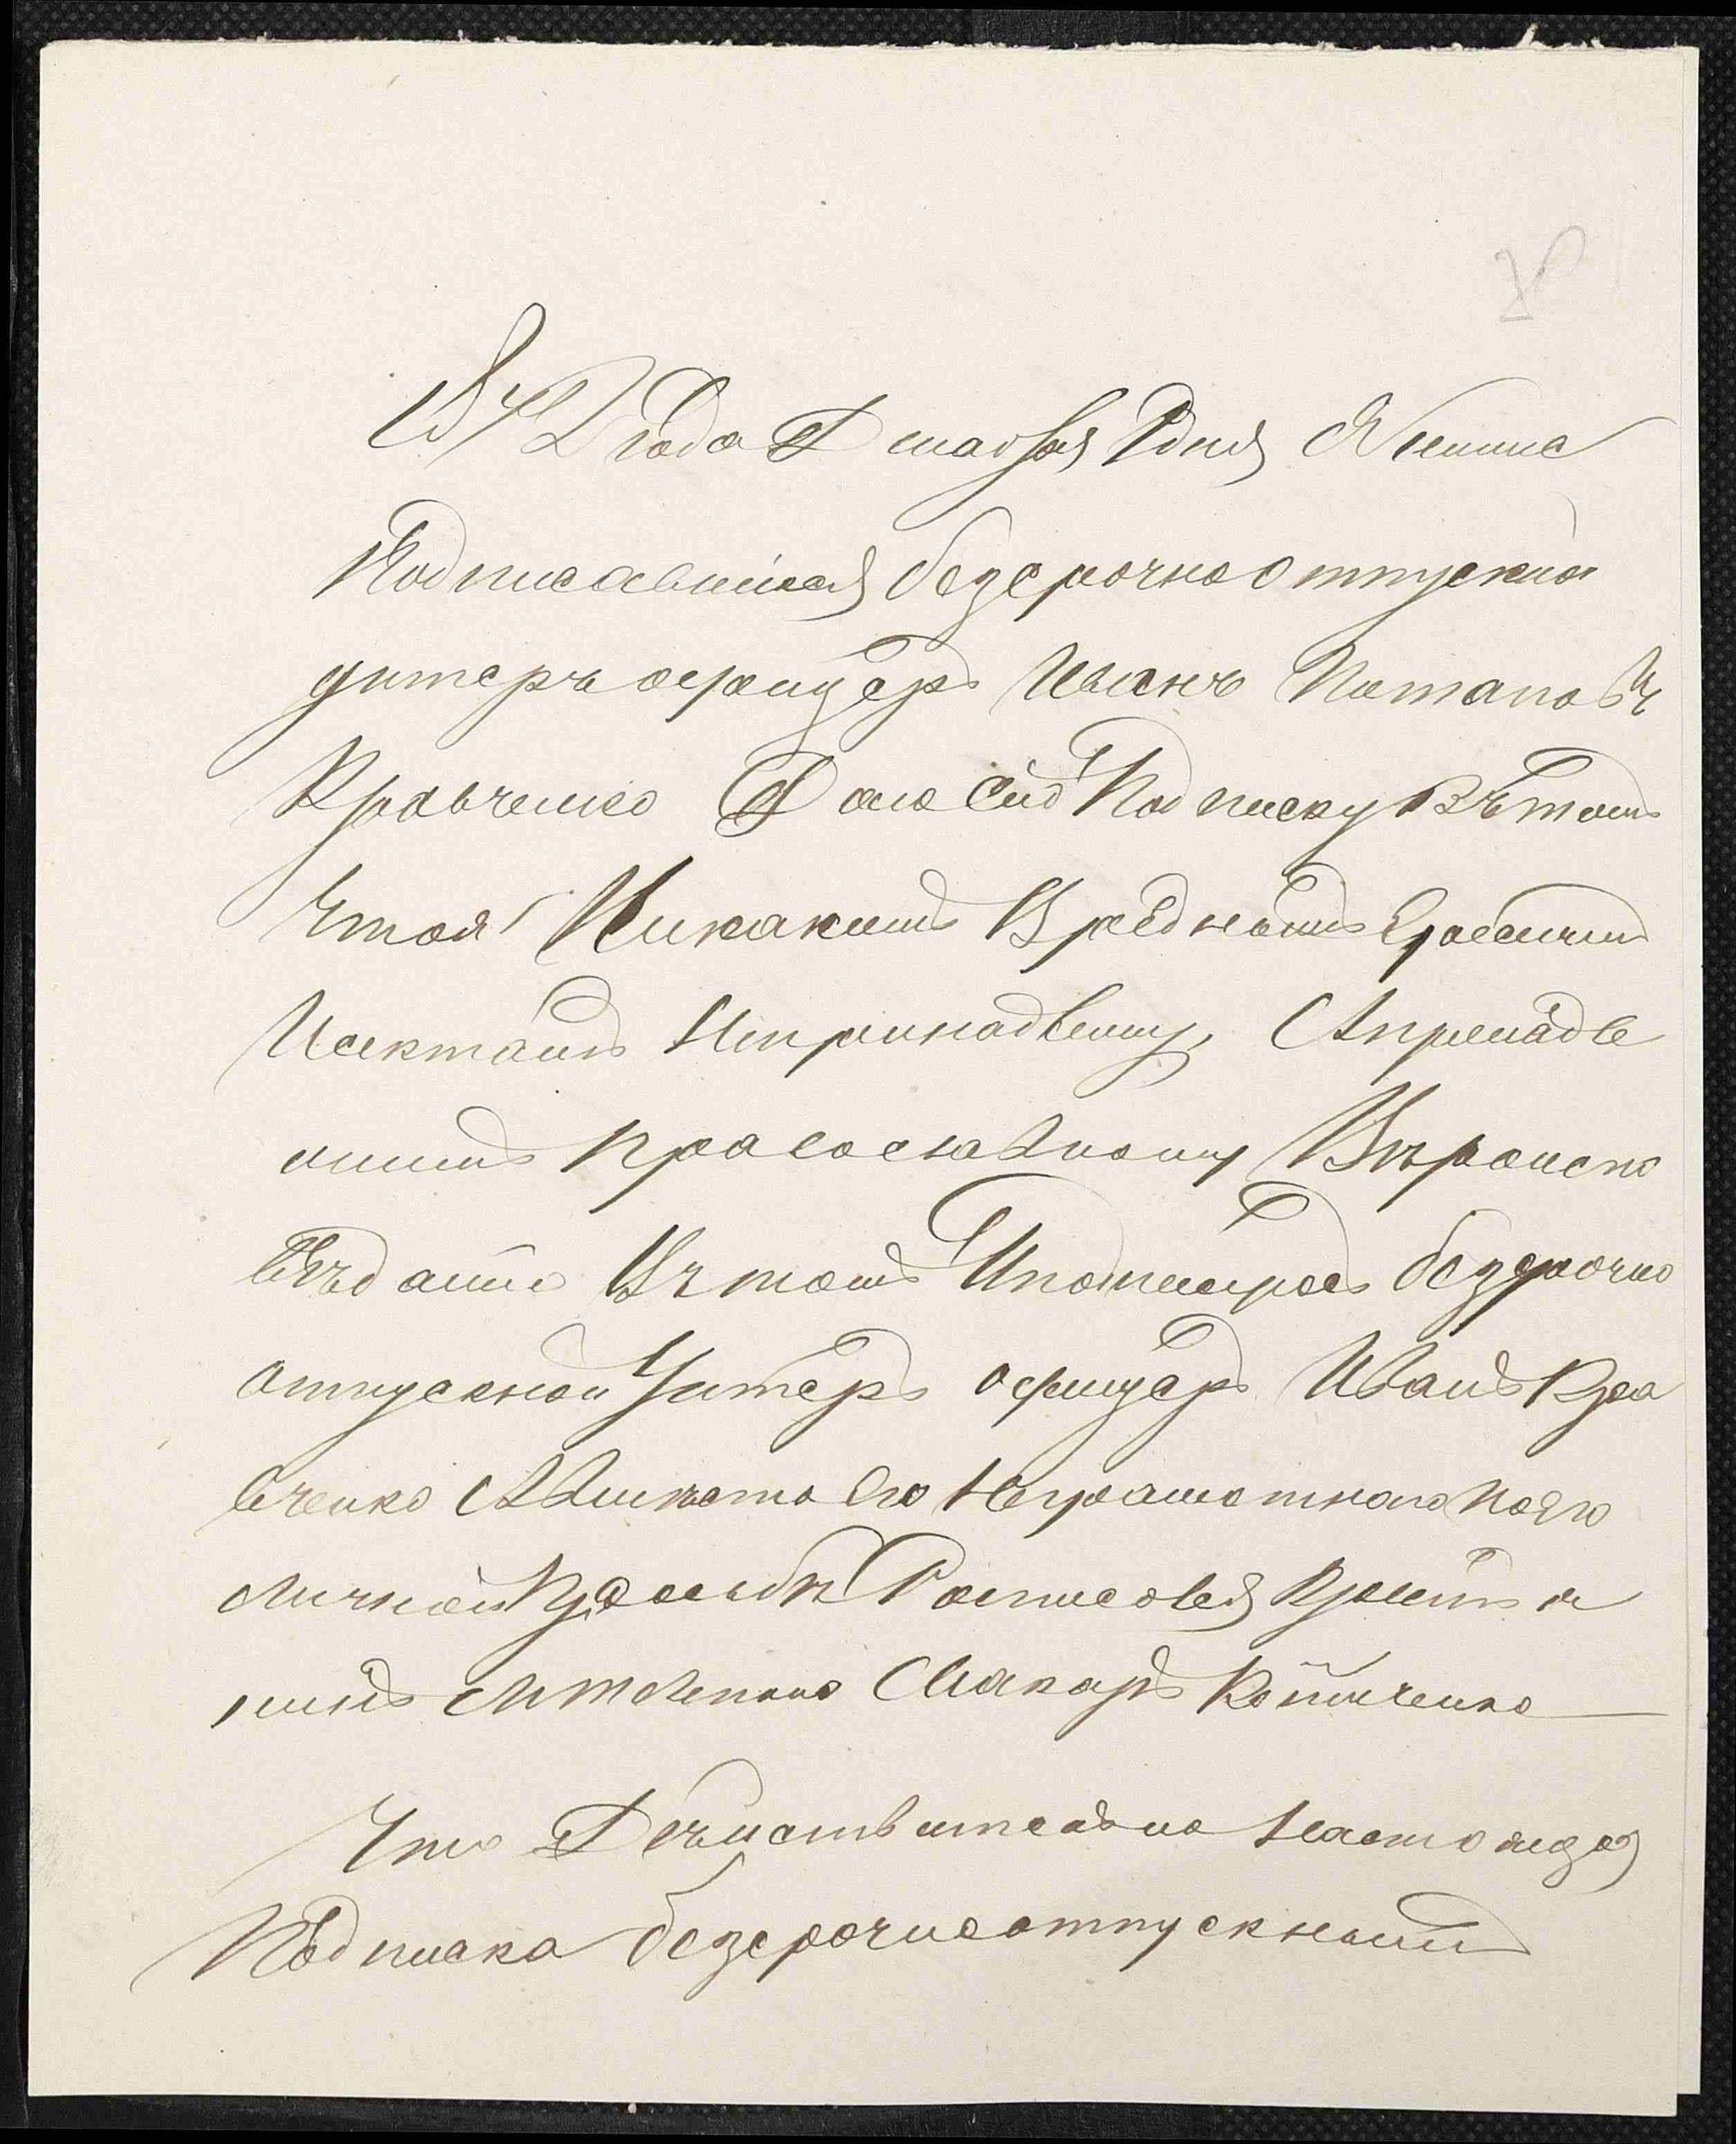 187 года маября дня Я ниже
Подписавшийся безсрочноотпускной
унтеръ офицеръ Иванъ Потаповъ
Кравченко Даю сию Подписку Вътомъ
Чтоя Никакимъ Вреднымъ Ересямъ
Исектамъ Непринадлежу, Апренадле
жимъ православному Въроиспо
въданию Вътомъ Иподписуюсь безсрочно
отпускной Унтеръ офицеръ Иванъ Кра
вченко Авместо его Неграмотнаго Поего
личной Прозьбъ Росписовся Крестья
нинъ Макаръ
Что Дъйствительно Настоящая
Подписка безсрочноотпускнымъ